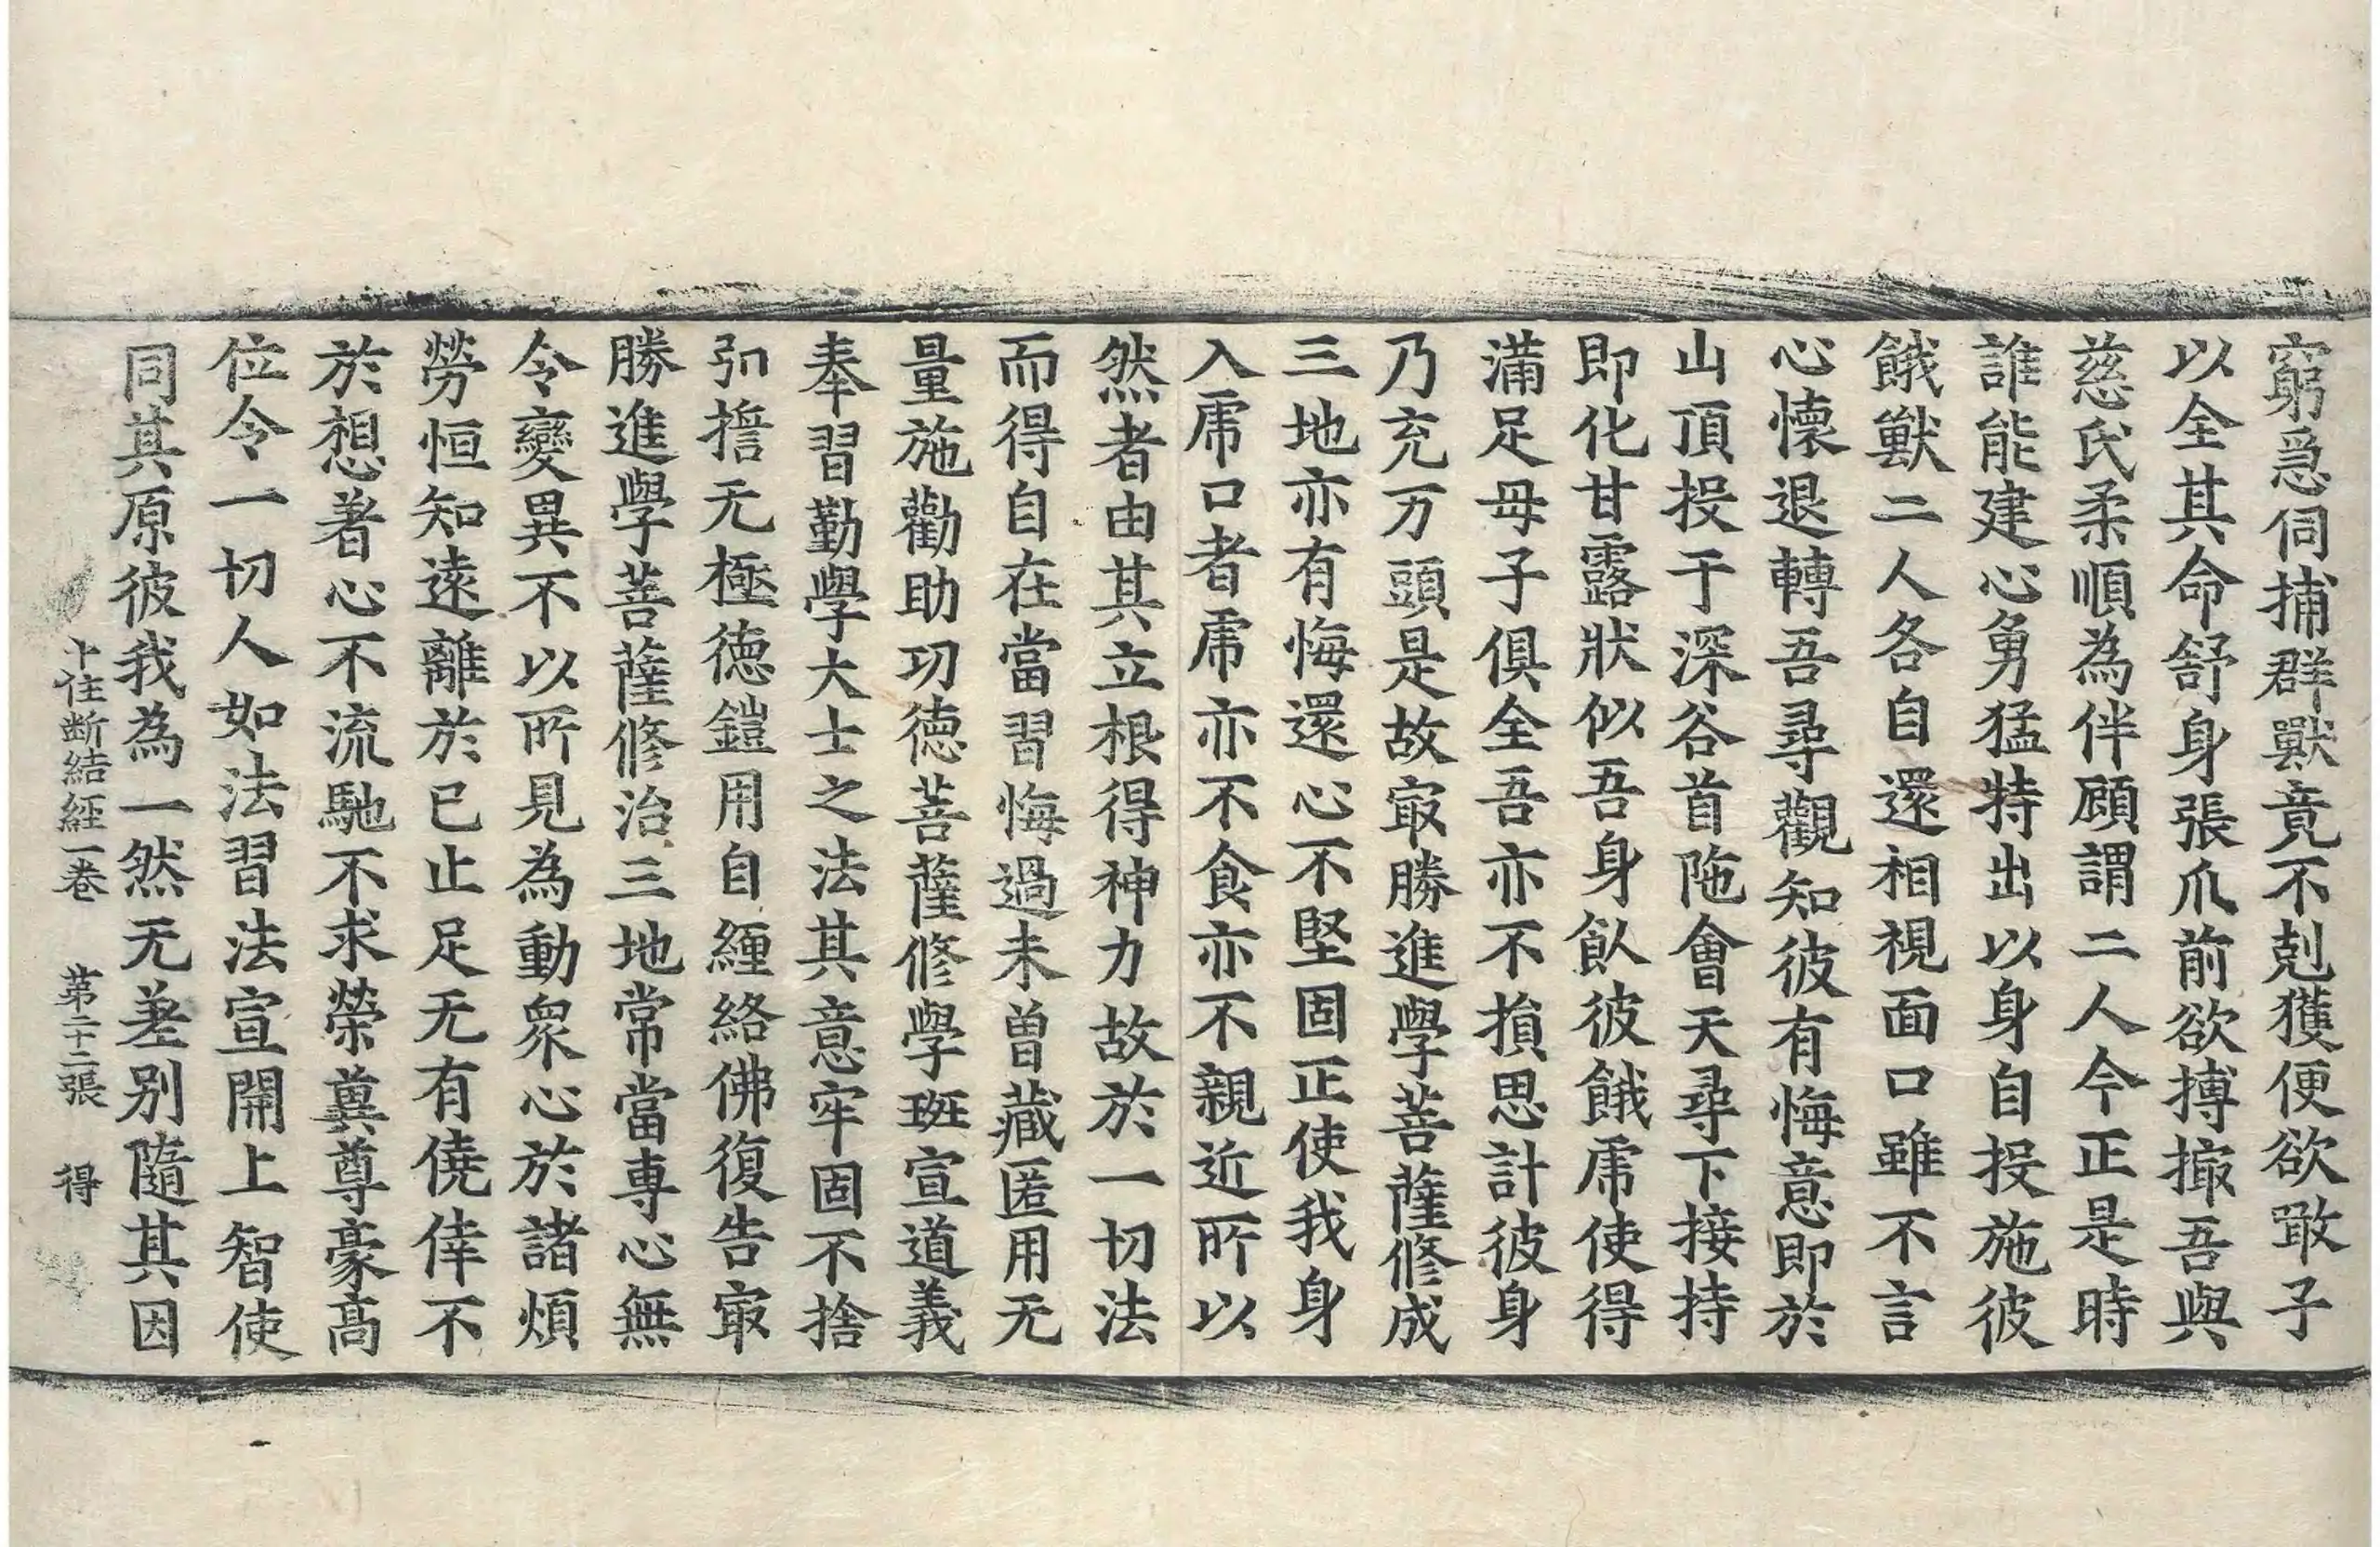 窮急伺捕群獸竟不剋獲便欲敢子
以全其命舒身張爪前欲搏撮吾與
慈氏柔順為伴顧謂二人今正是時
誰能建心勇猛特出以身自投施彼
餓獸二人各自還相視面口雖不言
心懷退轉吾尋觀知彼有悔意即於
山頂投于深谷首陁會天尋下接持
即化甘露狀似吾身飲彼餓虎使得
滿足母子俱全吾亦不損思計彼身
乃充万頭是故㝡勝進學菩薩修成
三地亦有悔還心不堅固正使我身
入虎口者虎亦不食亦不親近所以
然者由其立根得神力故於一切法
而得自在當習悔過未曽藏匿用无
量施勸助功德菩薩修學班宣道義
奉習勤學大士之法其意牢固不捨
弘誓无極德鎧用自纏絡佛復告㝡
勝進學菩薩修治三地常當專心無
令變異不以所見為動衆心於諸煩
勞恒知遠離於已止足无有僥倖不
於想著心不流馳不求榮兾尊豪高
位令一切人如法習法宣開上智使
同其原彼我為一然无差别隨其因
十住断結經一卷 第二十二張 得